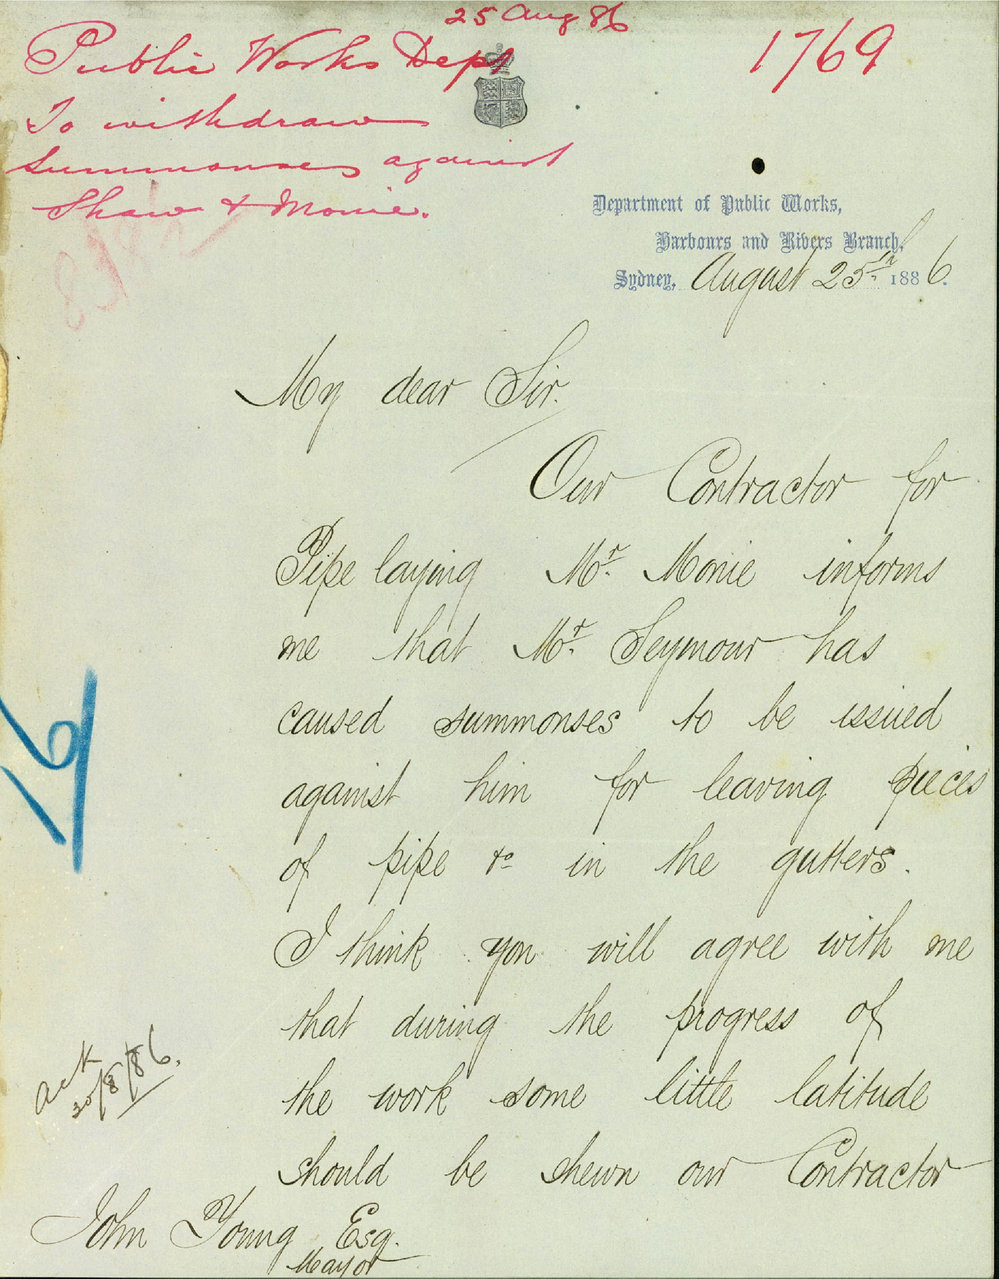 25 Aug 86
Public Works Dept
1769
To withdraw
summonses against
Shaw & Monie.
Department of Public Works,
Harbours and Rivers Branch,
Sydney, August 25th 1886.
My dear Sir.
Our Contractor for
Pipe laying Mr. Monie informs
me that Mr. Seymour has
caused summonses to be issued
against him for leaving pieces
of pipe &c in the gutters.
I think you will agree with me
that during the progress of
the work some little latitude
should be shewn our Contractor
16
ack
30/8/86.
John Young Esq.
Mayor